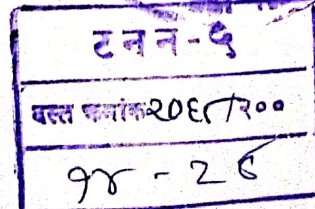 टनन-५
दस्त क्रमांक २०६८/२००
१४ - २६